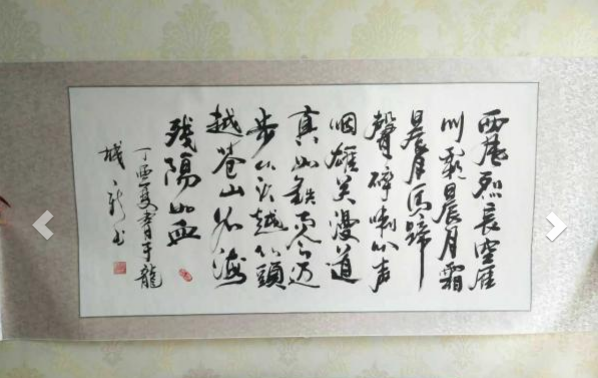 西風烈長空雁
叫霜晨月霜
晨月馬蹄
聲碎喇叭声
咽雄关漫道
真如鉄而今迈
步从头越从頭
越苍山如海
残陽如血
丁酉夏書于龍
城 书